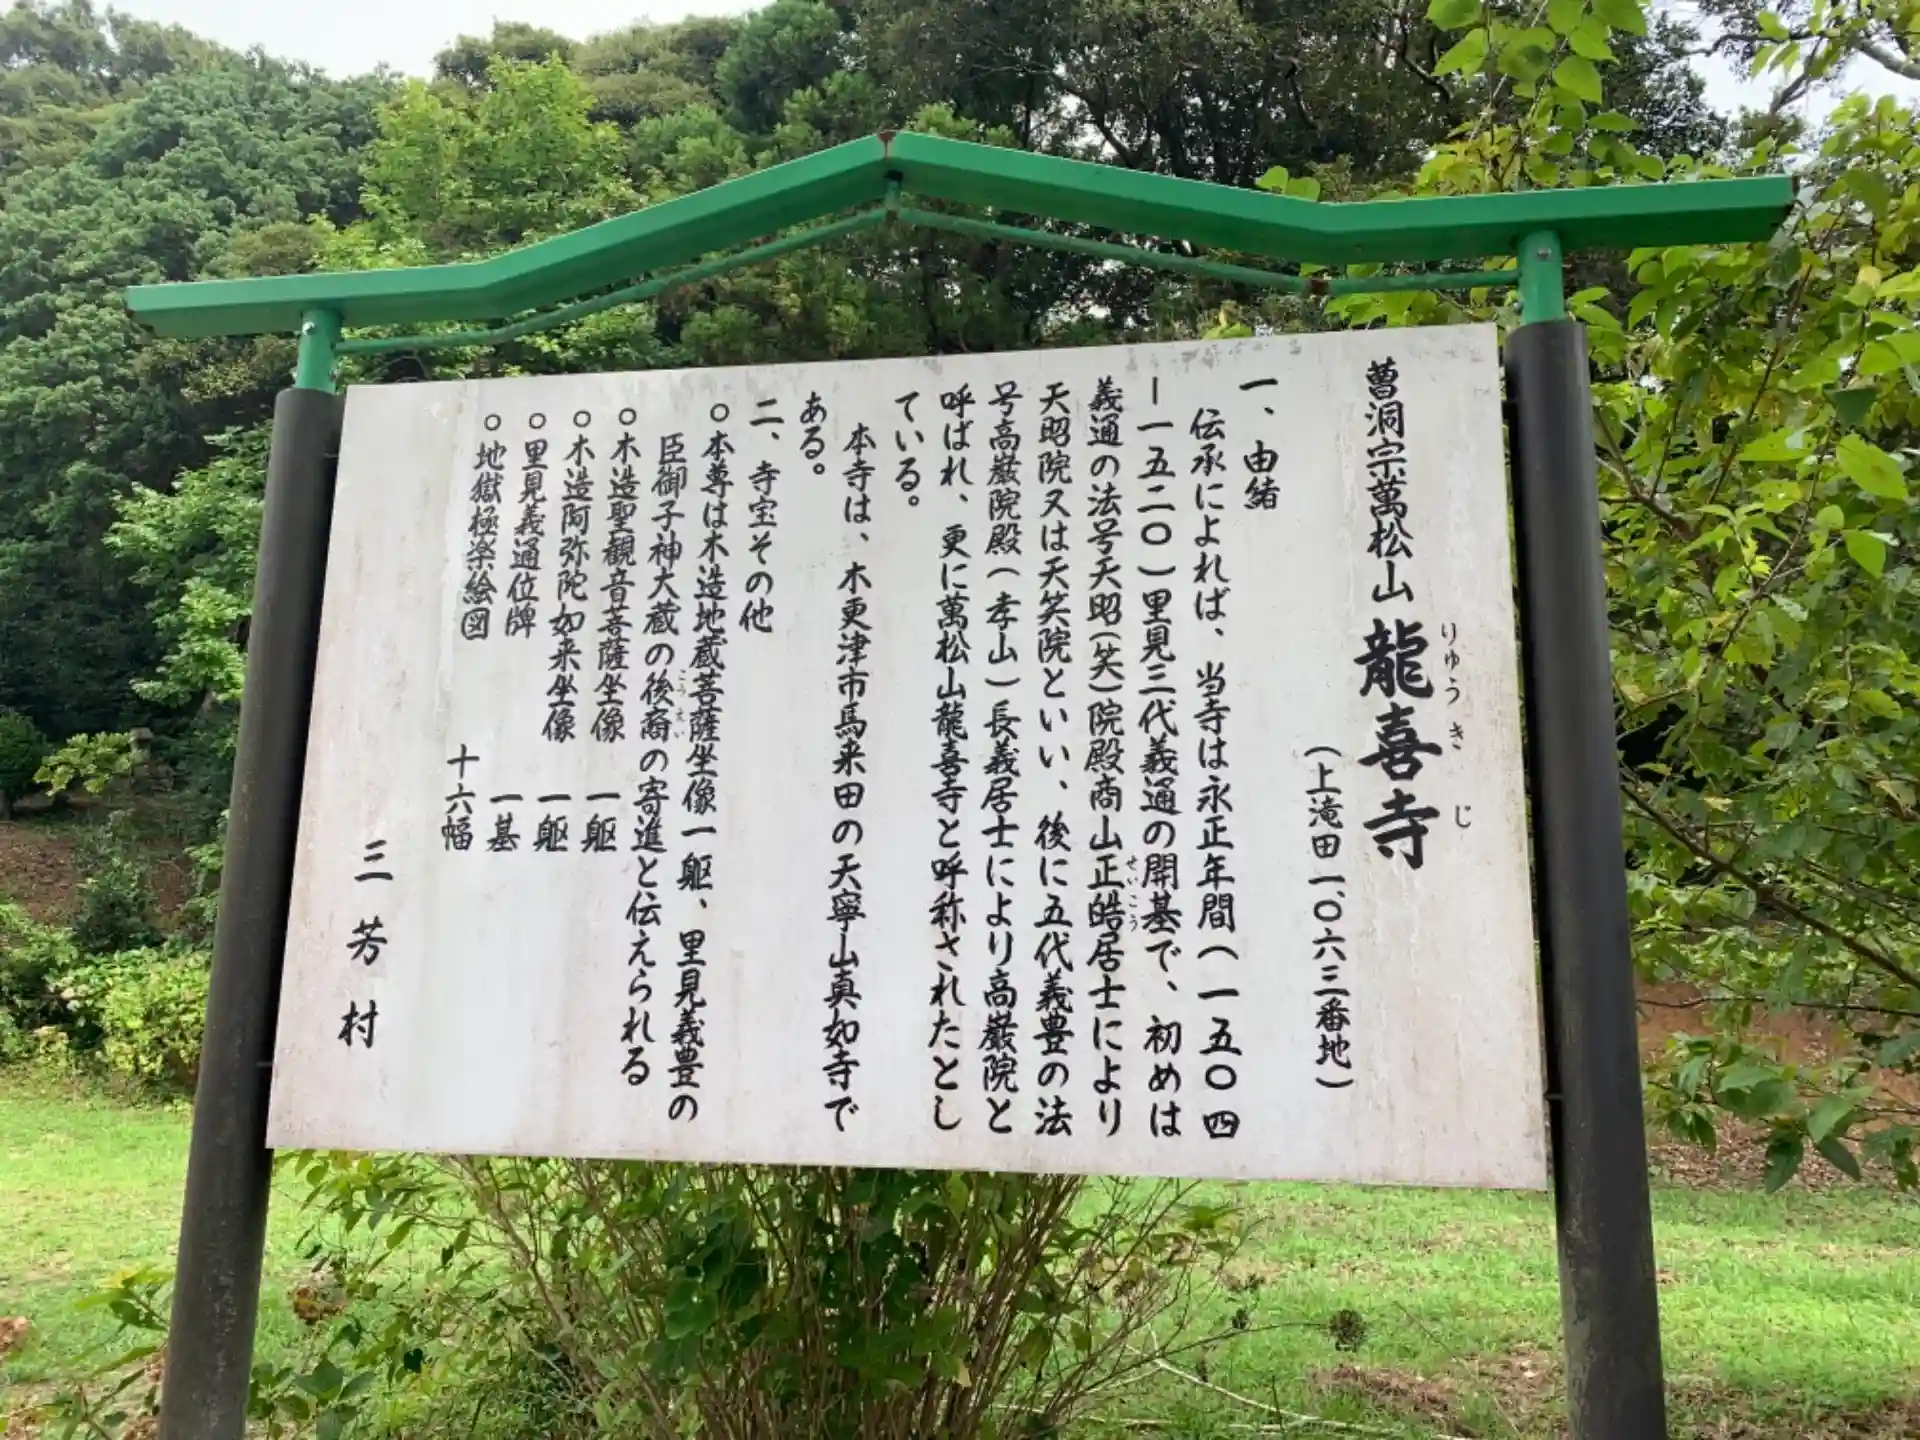 曹洞宗萬松山龍喜寺
りゅうきじ
(上滝田一、〇六三番地)
一、由緒
伝承によれば、当寺は永正年間(一五〇四
ー一五二〇)里見三代義通の開基で、初めは
義通の法号天昭(笑)院殿商山正皓居士により
せいこう
天昭院又は天笑院といい、後に五代義豊の法
号高巌院殿(孝山)長義居士により高巌院と
呼ばれ、更に萬松山龍喜寺と呼称されたとし
ている。
本寺は、木更津市馬来田の天寧山真如寺で
ある。
二、寺宝その他
○本尊は木造地蔵菩薩坐像一躯、里見義豊の
臣御子神大蔵の後裔の寄進と伝えられる
こうえい
○木造聖観音菩薩坐像 一躯
○木造阿弥陀如来坐像 一躯
○里見義通位牌 一基
○地獄極楽絵図 十六幅
三芳村